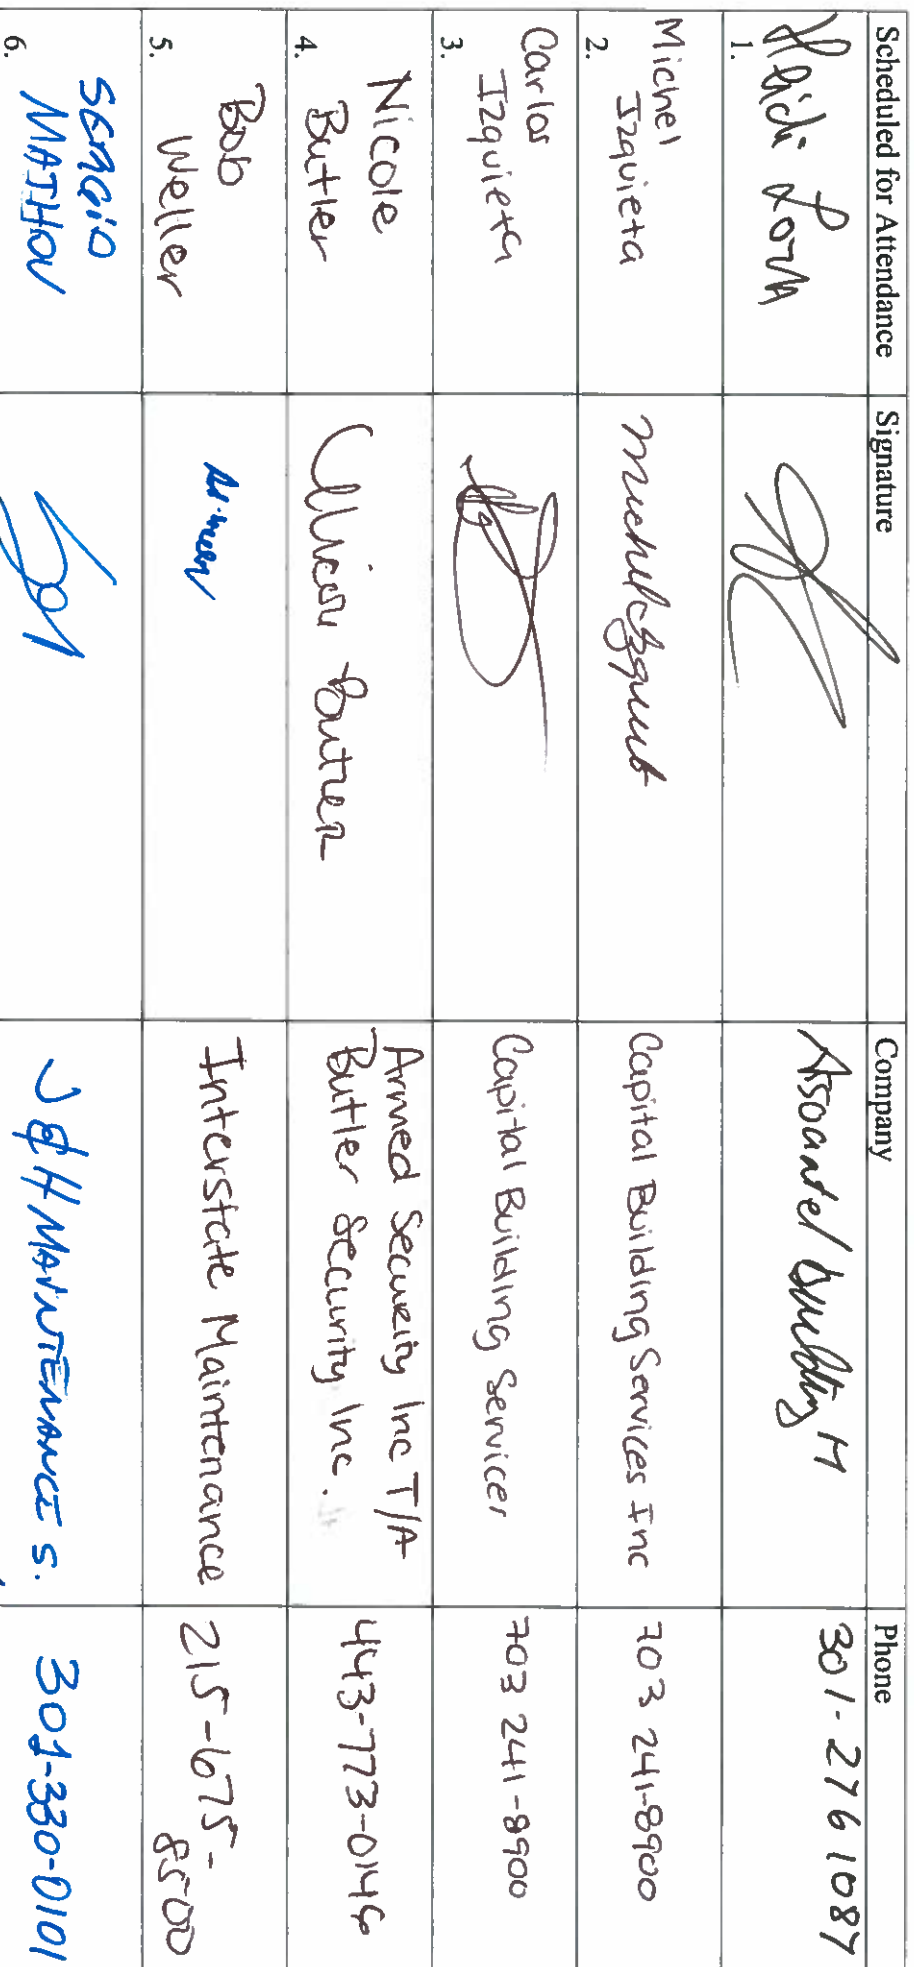 Scheduled for Attendance Signature Company Phone
1.
301-276 1087
Michel
Izquieta
2.
Capital Building Services Inc
703 241-8900
Carlos
Izquieta
3.
Capital Building Services
703 241-8900
Nicole
Butler
4.
Armed Security Inc T/A
Butler Security Inc.
443-773-0146
Bob
Weller
5.
Interstate Maintenance
215-675-
8500
SERGIO
MATHON
6.
J & H MAINTENANCE S.
301-330-0101